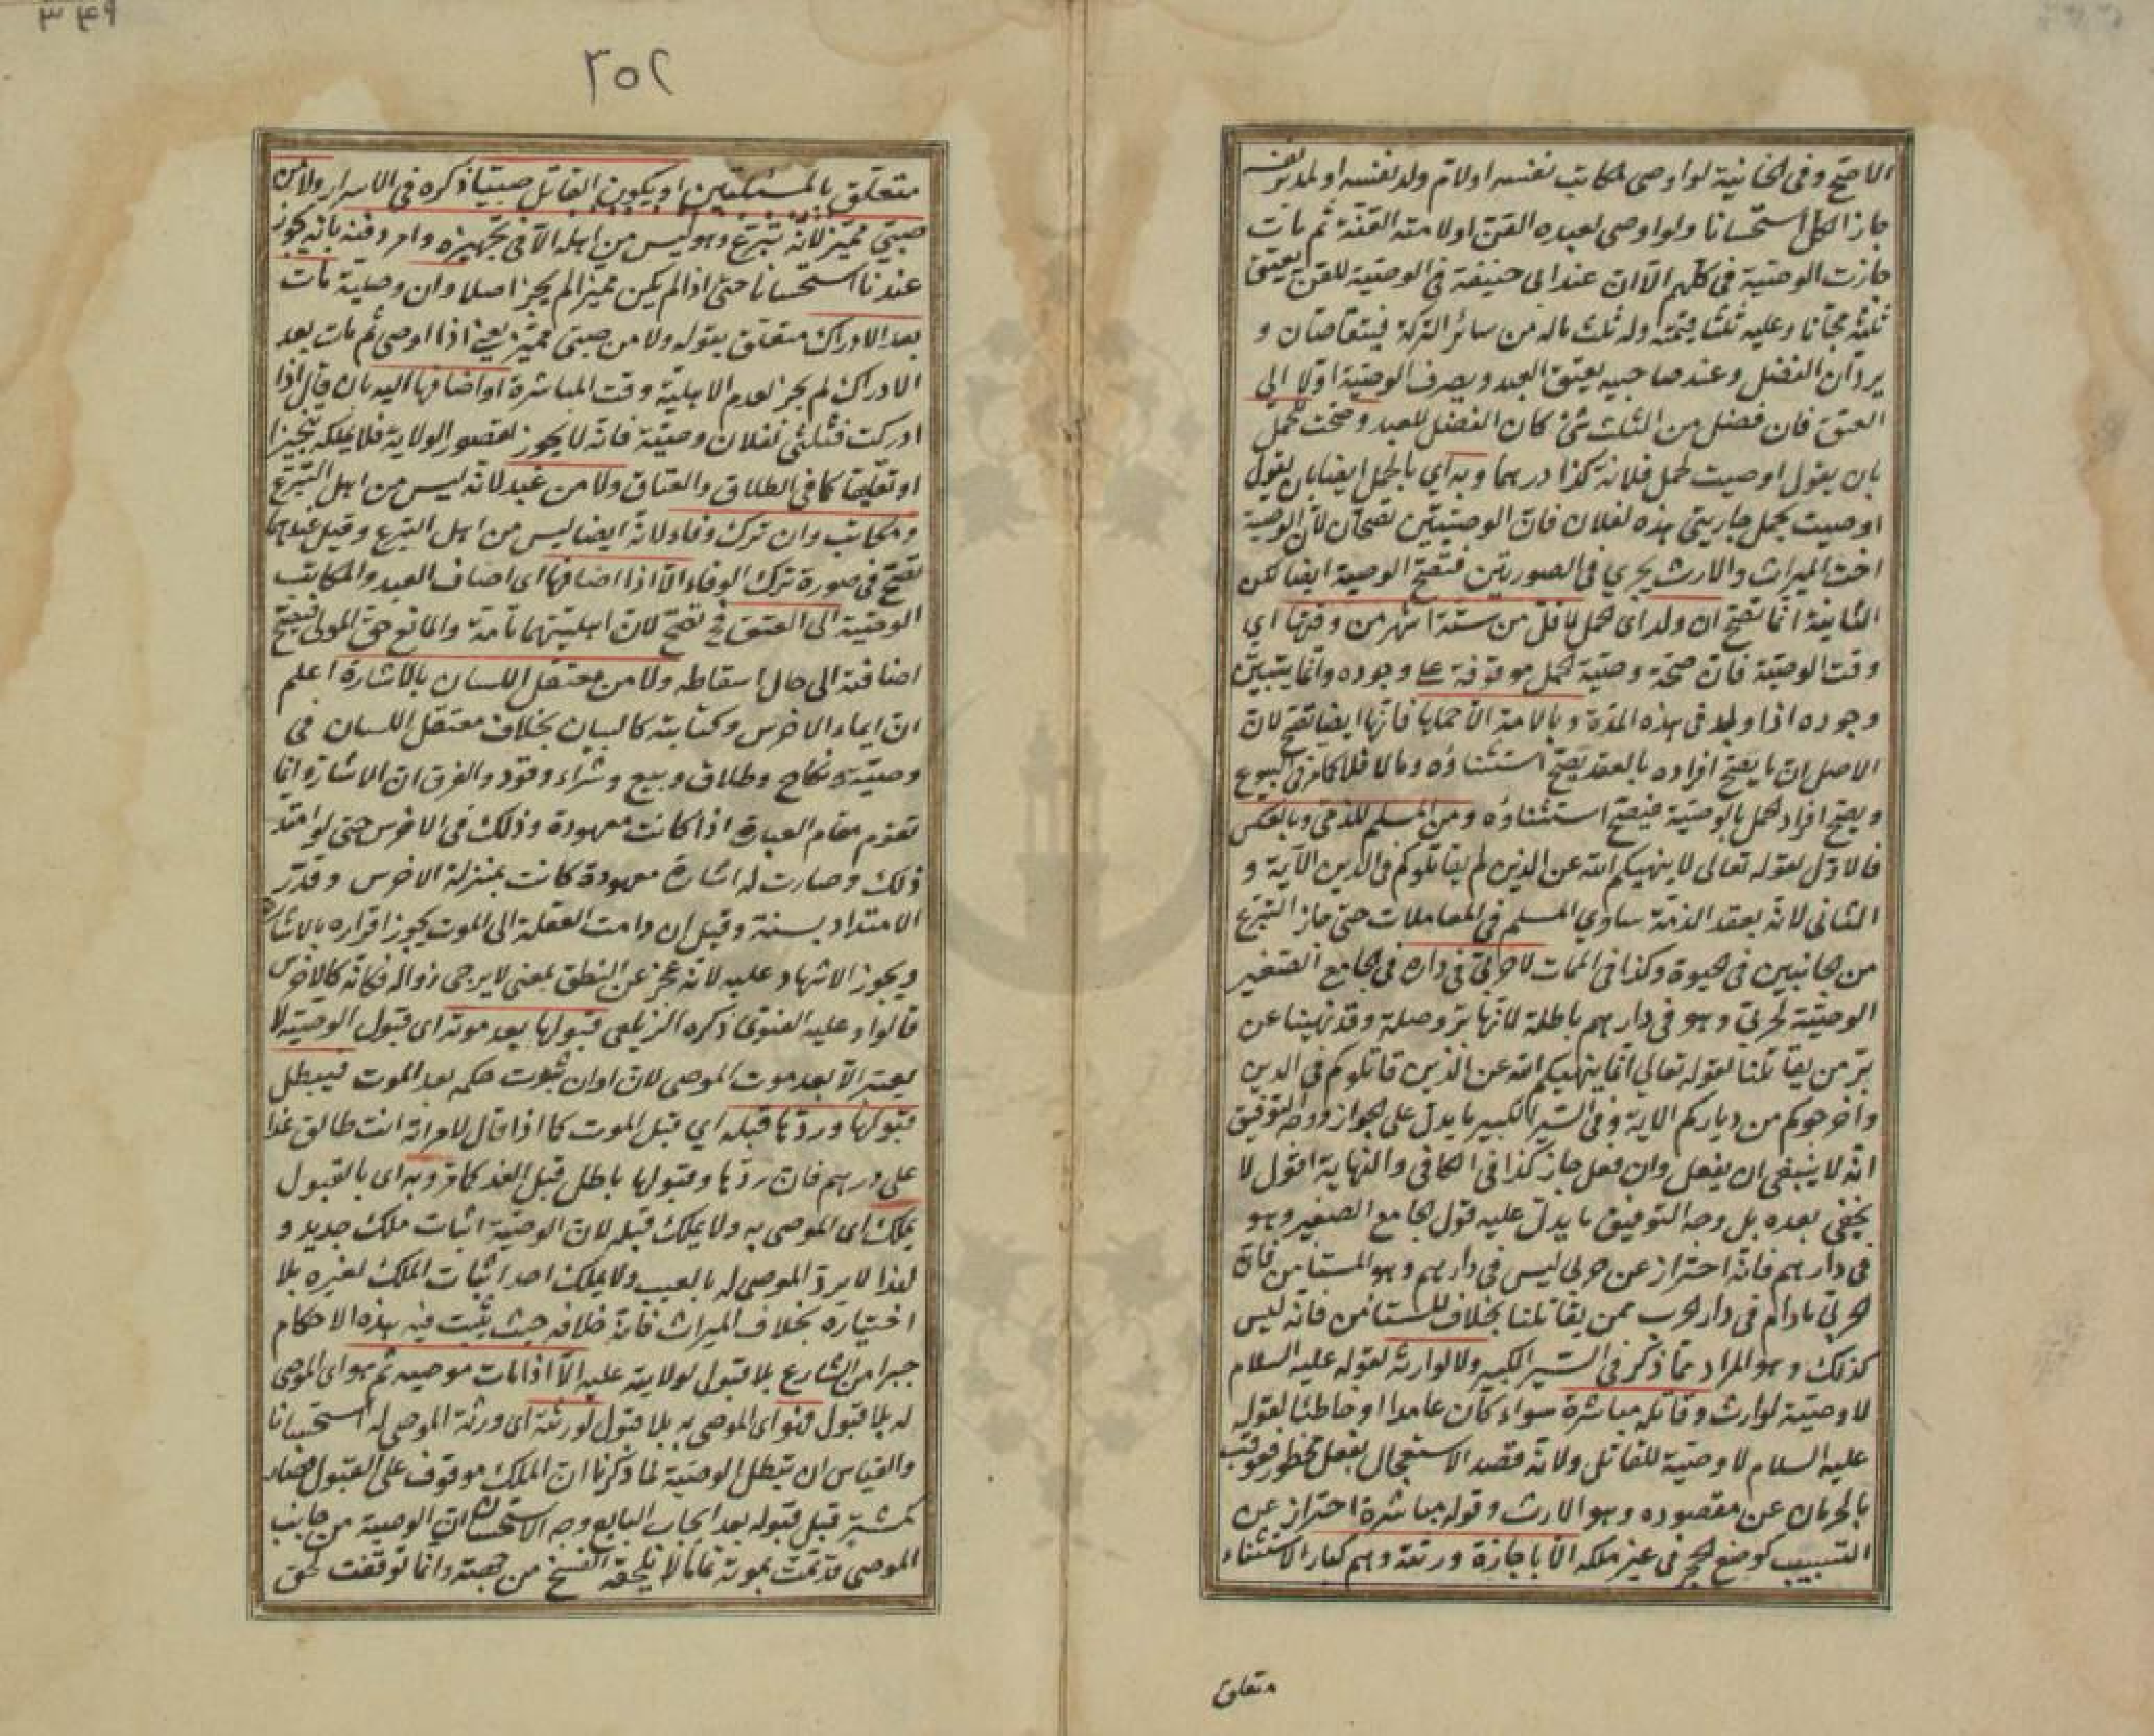 الاصح وفى الخانية لو اوصى لمكاتب نفسه او لام ولد نفسه او لمدبر نفسه
جاز الكل استحسانا ولو اوصى لعبده القن او لامته القنة ثم مات
جازت الوصية فى كلهم الا ان عند ابى حنيفة فى الوصية للقن يعتق
ثلثه مجانا وعليه ثلثا قيمته وله ثلث ماله من سائر التركة فيتقاصان و
يردان الفضل وعند صاحبيه يعتق العبد ويصرف الوصية اولا الى
العتق فان فضل من الثلث شئ كان الفضل للعبد وصحت للحمل
بان يقول اوصيت لحمل فلانة كذا درهما وبه اي بالحمل ايضا بان يقول
اوصيت بحمل جاريتى هذه لفلان فان الوصيتين تصحان لان الوصية
اخت الميراث والارث يجري فى الصورتين فتصح الوصية ايضا لكن
الثانية انما تصح ان ولد اى الحمل لاقل من ستة اشهر من وقتها اي
وقت الوصية فان صحة وصية الحمل موقوفة على وجوده وانما يتبين
وجوده اذا ولد فى هذه المدة وبالامة الا حملها فانها ايضا تصح لان
الاصل ان ما يصح افراده بالعقد يصح استثناؤه وما لا فلا كما مر فى البيوع
ويصح افراد الحمل بالوصية فيصح استثناؤه ومن المسلم للذمى وبالعكس
فالاول لقوله تعالى لا ينهيكم الله عن الذين لم يقاتلوكم فى الدين الآية و
الثانى لانه بعقد الذمة ساوي المسلم فى المعاملات حتى جاز التبرع
من الجانبين فى الحيوة وكذا فى الممات لا حربى فى داره فى الجامع الصغير
الوصية لحربى وهو فى دارهم باطلة لانها بر وصلة وقد نهينا عن
بر من يقاتلنا لقوله تعالي انما ينهيكم الله عن الذين قاتلوكم فى الدين
واخرجوكم من دياركم الاية وفى السير الكبير ما يدل على الجواز ووجه التوفيق
انه لا ينبغى ان يفعل وان فعل جاز كذا فى الكافى والنهاية اقول لا
يخفى بعده بل وجه التوفيق ما يدل عليه قول الجامع الصغير وهو
فى دارهم فانه احتراز عن حربى ليس فى دارهم وهو المستامن فان
الحربى مادام فى دار الحرب ممن يقاتلنا بخلاف المستامن فانه ليس
كذلك وهو المراد مما ذكر فى السير الكبير ولا لوارثه لقوله عليه السلام
لا وصية لوارث وقاتله مباشرة سواء كان عامدا او خاطئا لقوله
عليه السلام لا وصية للقاتل ولانه قصد الاستعجال بفعل محظور فعوقب
بالحرمان عن مقصوده وهو الارث وقوله مباشرة احتراز عن
التسبيب كوضع الحجر فى غير ملكه الا باجازة ورثته وهم كبار الاستثناء
متعلق
٣٥٢
متعلق بالمسئلتين او يكون القاتل صبيا ذكره فى الاسرار ولا من
صبى مميز لانه تبرع وهو ليس من اهله الا فى تجهيزه وامر دفنه فانه يجوز
عندنا استحسانا حتى اذا لم يكن مميزا لم يجز اصلا وان وصلية مات
بعد الادراك متعلق بقوله ولا من صبى مميز يعنى اذا اوصى ثم مات بعد
الادراك لم يجز لعدم الاهلية وقت المباشرة او اضافها اليه بان قال اذا
ادركت فثلثى لفلان وصية فانه لا يجوز لقصور الولاية فلا يملكه تنجيزا
او تعليقا كما فى الطلاق والعتاق ولا من عبد لانه ليس من اهل التبرع
ومكاتب وان ترك وفاء لانه ايضا ليس من اهل التبرع وقيل عندهما
تصح فى صورة ترك الوفاء الا اذا اضافها اى اضاف العبد والمكاتب
الوصية الى العتق فح تصح لان اهليتهما تامة والمانع حق المولى فتصح
اضافته الى حال اسقاطه ولا من معتقل اللسان بالاشارة اعلم
ان ايماء الاخرس وكتابته كالبيان بخلاف معتقل اللسان فى
وصية ونكاح وطلاق وبيع وشراء وقود والفرق ان الاشارة انما
تقوم مقام العبارة اذا كانت معهودة وذلك فى الاخرس حتى لو امتد
ذلك وصارت له اشارة معهودة كانت بمنزلة الاخرس وقدر
الامتداد بسنة وقيل ان دامت العقلة الى الموت يجوز اقراره بالاشارة
ويجوز الاشهاد عليه لانه عجز عن النطق بمعنى لا يرجى زواله فكانه كالاخرس
قالوا وعليه الفتوى ذكره الزيلعى قبولها بعد موته اى قبول الوصية لا
يعتبر الا بعد موت الموصى لان اوان ثبوت حكمه بعد الموت فيبطل
قبولها وردها قبله اي قبل الموت كما اذا قال لامراته انت طالق غدا
على درهم فان ردها وقبولها باطل قبل الغد كما مر وبه اى بالقبول
يملك اى الموصى به ولا يملك قبله لان الوصية اثبات ملك جديد و
لهذا لا يرد الموصى له بالعيب ولا يملك احد اثبات الملك لغيره بلا
اختياره بخلاف الميراث فانه خلافة حيث يثبت فيه هذه الاحكام
جبرا من الشارع بلا قبول لولايته عليه الا اذا مات موصيه ثم هو اى الموصى
له بلا قبول فهو اى الموصى به بلا قبول لورثته اى ورثة الموصى له استحسانا
والقياس ان تبطل الوصية لما ذكرنا ان الملك موقوف على القبول فصار
كمشتر قبل قبوله بعد ايجاب البايع وجه الاستحسان ان الوصية من جانب
الموصى قد تمت بموته تماما لا يلحقه الفسخ من جهته وانما توقفت لحق